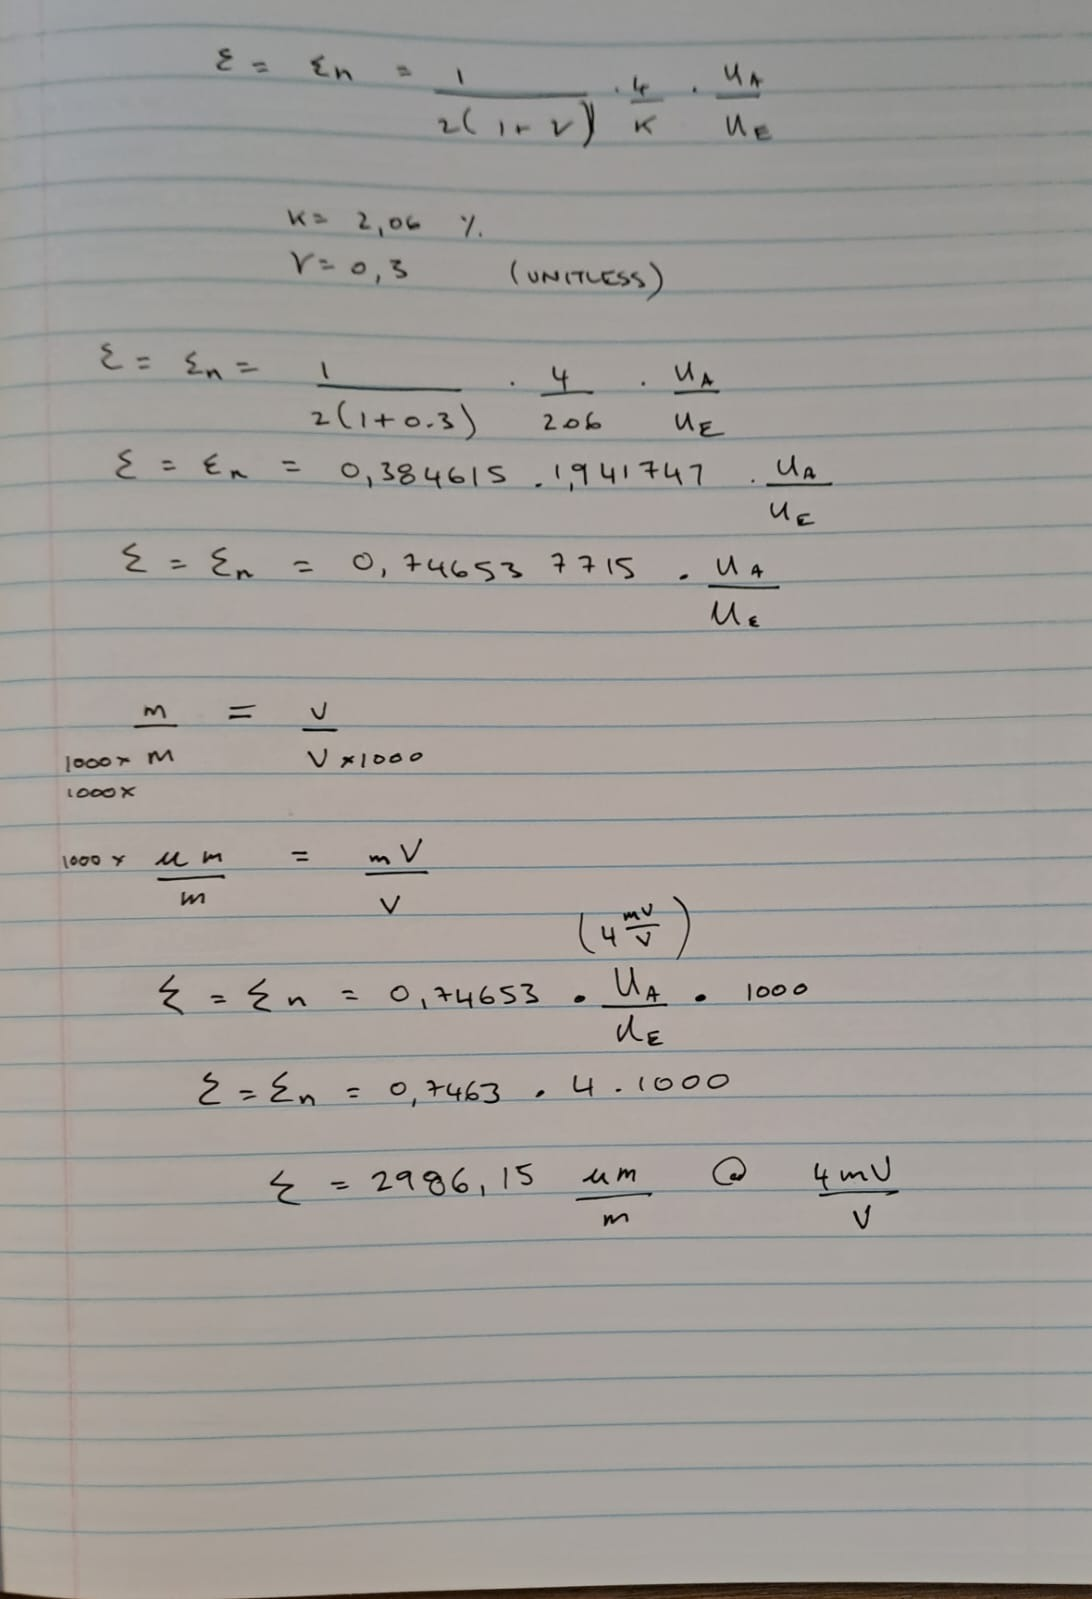 Σ = Σn = 1 / 2(1+ν) · 4/K · UA/UE
K= 2,06 %.
V= 0,3 (UNITLESS)
Σ = Σn = 1 / 2(1+0.3) · 4/206 · UA/UE
Σ = Σn = 0,384615 . 1,941747 . UA/UE
Σ = Σn = 0,74653 7715 . UA/UE
m / 1000x m = V / V x1000
1000x
1000 x um/m = mV/V
(4 mV/V)
Σ = Σn = 0,74653 . UA/UE . 1000
Σ = Σn = 0,7463 . 4 . 1000
Σ = 2986,15 um/m @ 4mV/V